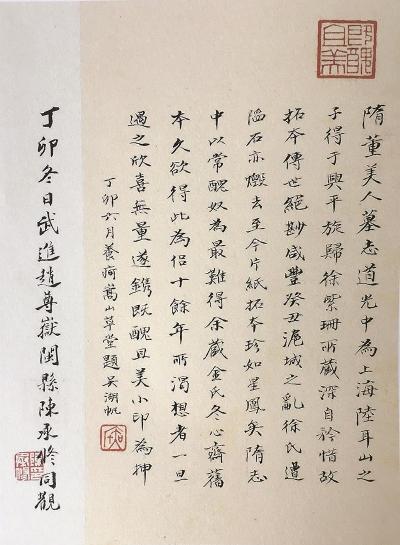 既醜
且美
隋董美人墓志道光中為上海陸耳山之
子得于興平旋歸徐紫珊所藏深自矜惜故
拓本傳世絕尠咸豐癸丑滬城之亂徐氏遭
石亦燬去至今片紙拓本珍如星鳳矣隋志
中以常醜奴為最難得余藏金氏冬心齋舊
本久欲得此為侶十餘年所渴想者一旦
遇之欣喜無量遂鐫既醜且美小印為押
丁卯六月養疴嵩山草堂題吳湖帆
丁卯冬日武進趙尊嶽閩縣陳承修同觀